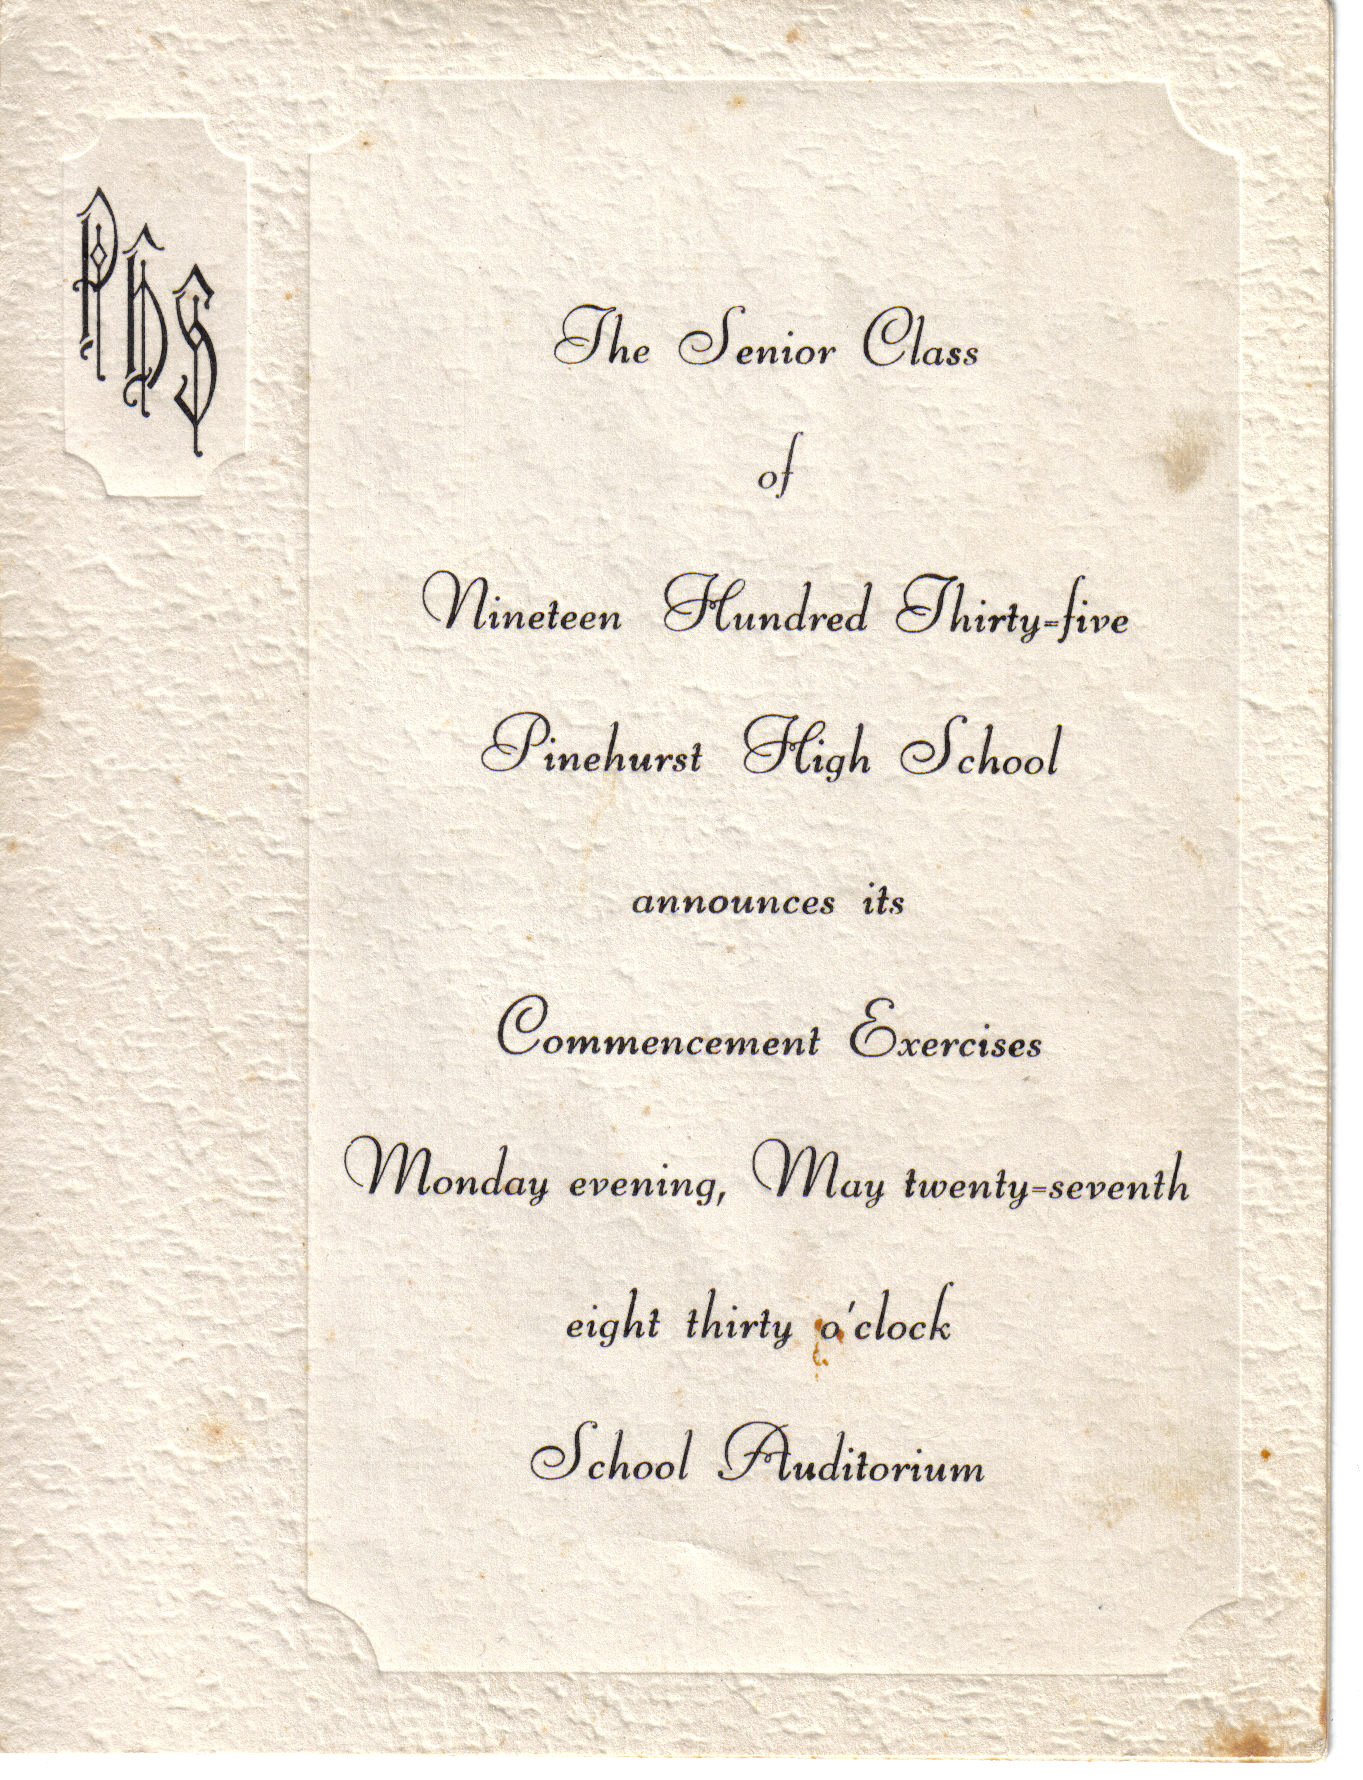 PHS
The Senior Class
of
Nineteen Hundred Thirty-five
Pinehurst High School
announces its
Commencement Exercises
Monday evening, May twenty-seventh
eight thirty o'clock
School Auditorium